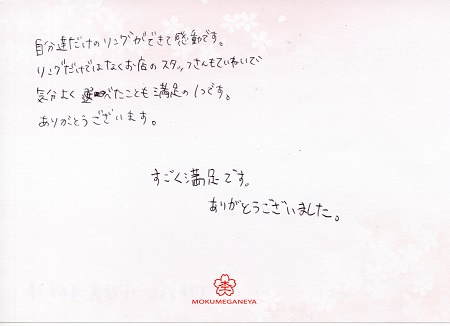 自分達だけのリングができて感動です。
リングだけではなくお店のスタッフさんもていねいで
気分よく選べたことも満足の1つです。
ありがとうございます。
すごく満足です。
ありがとうございました。
MOKUMEGANEYA